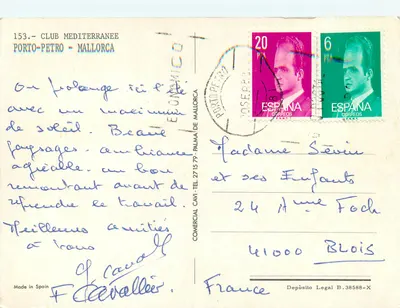 153.- CLUB MEDITERRANEE
PORTO-PETRO - MALLORCA
On prolonge ici l'été
avec un maximum
de soleil. Beaux
paysages. ambiance
agréable. un bon
remontant avant de
reprendre le travail.
Meilleures amitiés
à tous
Cavall
F Cavallier
Made in Spain
COMERCIAL CAVI.-TEL. 27 15 79 - PALMA DE MALLORCA
ECONOMICO
PORTO PETRO
20
PTA
ESPAÑA
CORREOS
6
PTA
ESPAÑA
CORREOS
Madame
et ses Enfants
24 Ame Foch
41000 BLOIS
France
Depósito Legal B. 38588-X